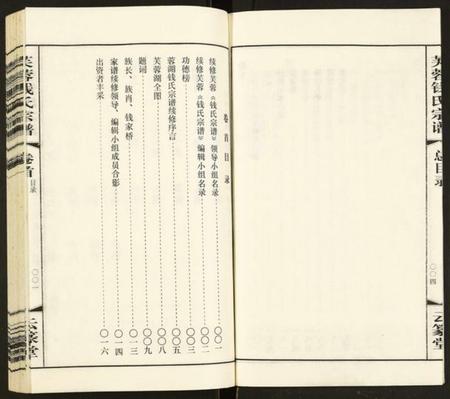 芙蓉钱氏宗谱
总目录
〇〇四
云篆堂
卷首目录
续修芙蓉《钱氏宗谱》领导小组名录……〇〇一
续修芙蓉《钱氏宗谱》编辑小组名录……〇〇二
功德榜……〇〇三
蓉湖钱氏宗谱续修序言……〇〇五
芙蓉湖全图……〇〇八
题词……〇〇九
族长、族肖、钱家桥……〇一三
家谱续修领导、编辑小组成员合影……〇一四
出资者丰采……〇一六
芙蓉钱氏宗谱
卷首
目录
〇〇一
云篆堂